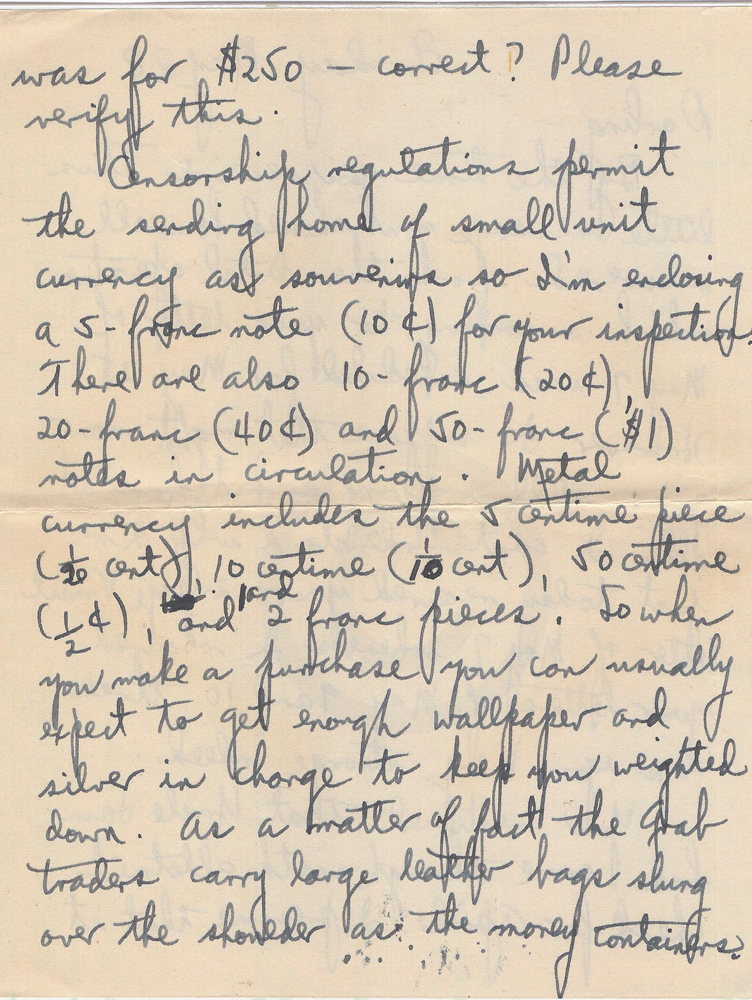 was for $250 – correct? Please
verify this.
Censorship regulations permit
the sending home of small unit
currency as souvenirs so I'm enclosing
a 5-franc note (10¢) for your inspection.
There are also 10-franc (20¢),
20-franc (40¢) and 50-franc ($1)
notes in circulation. Metal
currency includes the 5 centime piece
(1/20 cent), 10 centime (1/10 cent), 50 centime
(1/2¢), and 1 and 2 franc pieces. So when
you make a purchase you can usually
expect to get enough wallpaper and
silver in change to keep you weighted
down. As a matter of fact the Arab
traders carry large leather bags slung
over the shoulder as the money containers.